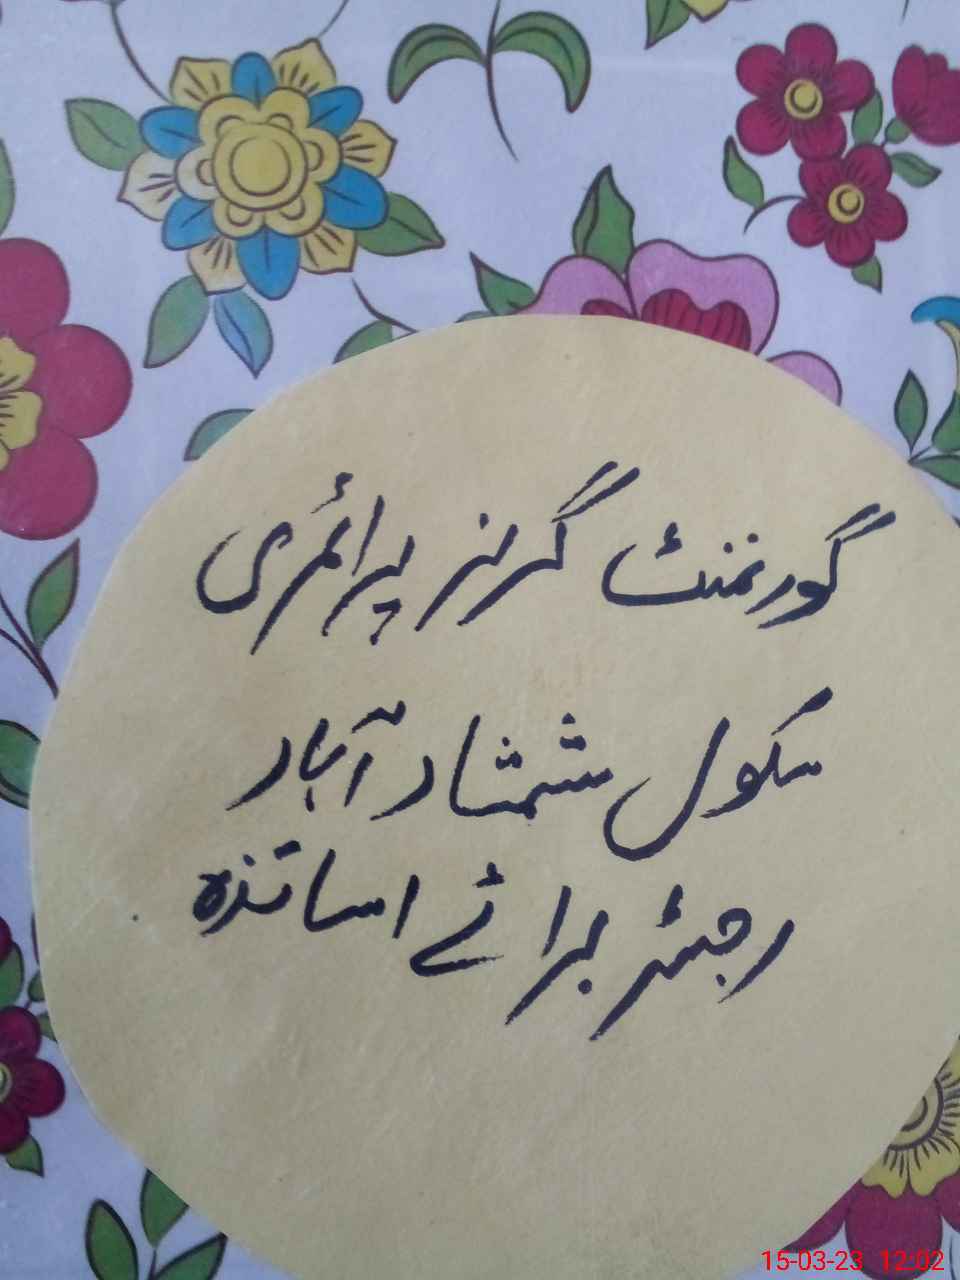 گورنمنٹ گرلز پرائمری
سکول شمشاد آباد
رجسٹر برائے اساتذہ
15-03-23 12:02